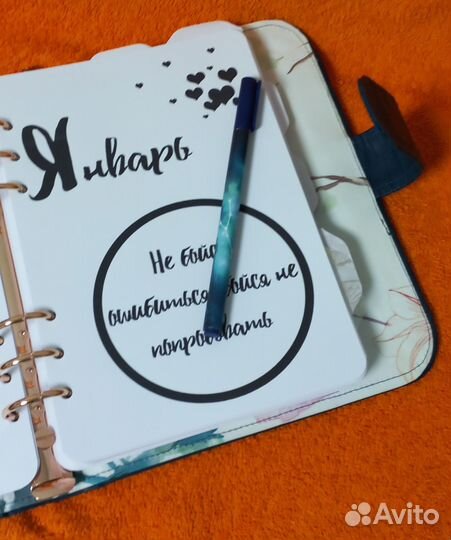 Январь
Не бойся
ошибиться, бойся не
попробовать
Avito